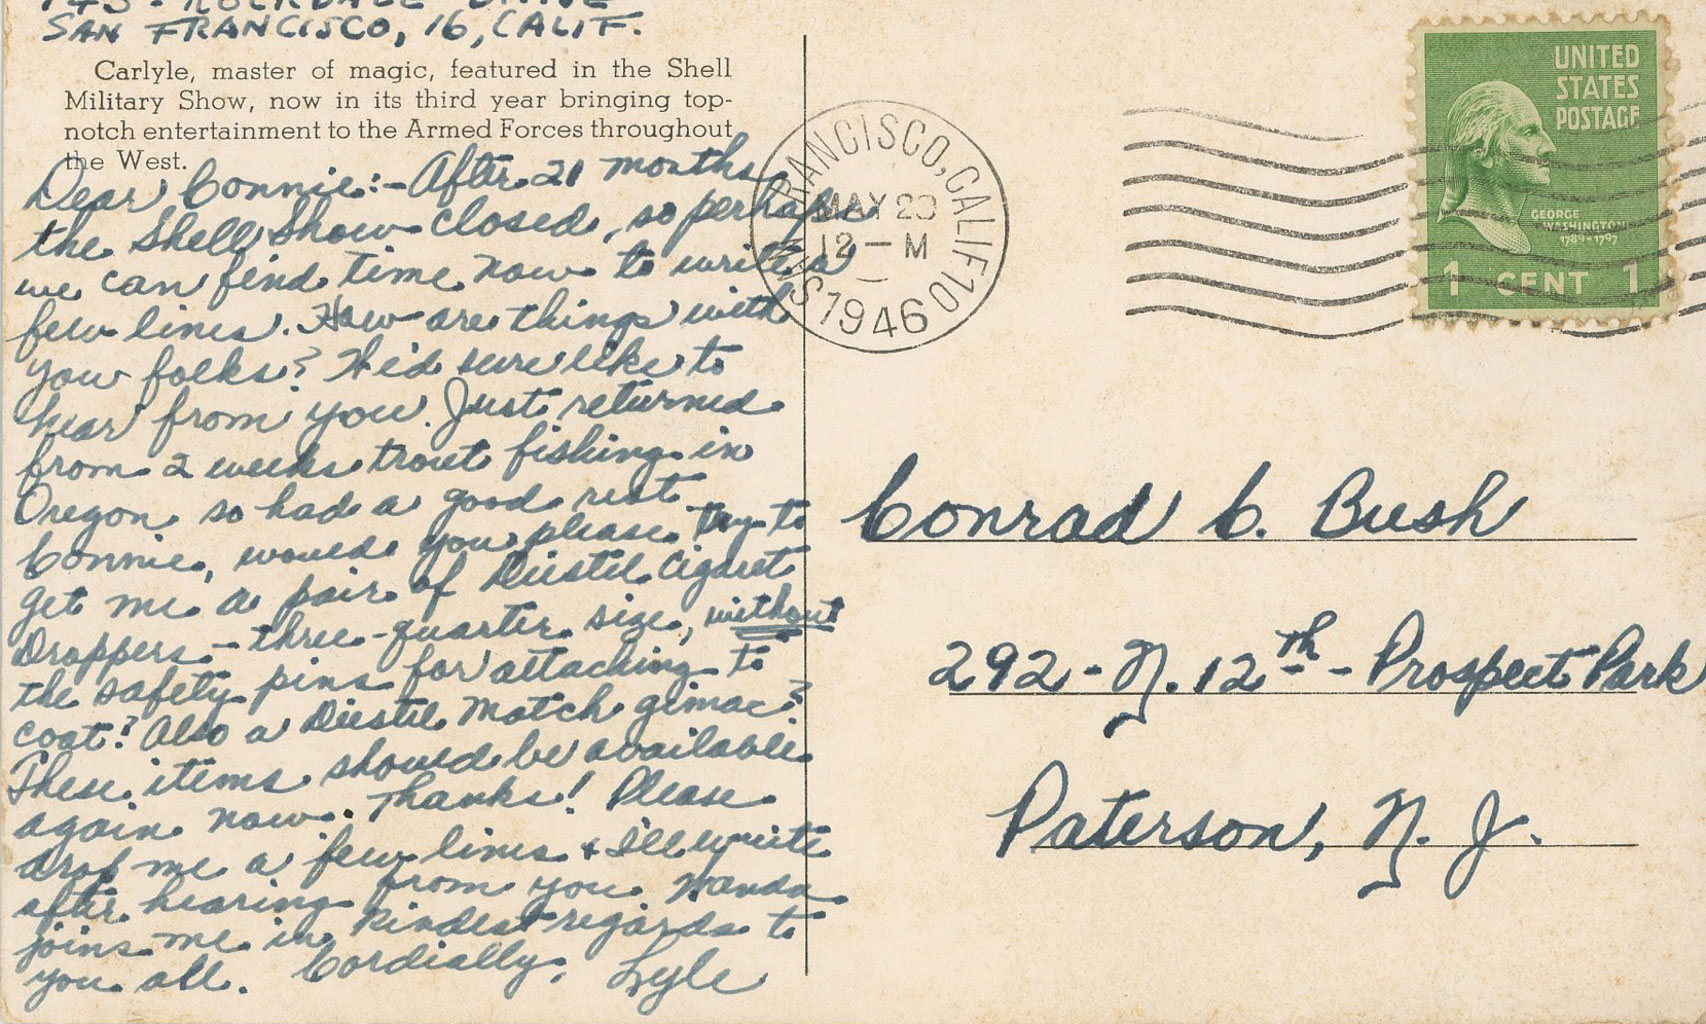 SAN FRANCISCO, 16, CALIF.
Carlyle, master of magic, featured in the Shell
Military Show, now in its third year bringing top-
notch entertainment to the Armed Forces throughout
the West.
Dear Connie:- After 21 months
the Shell Show closed, so perhaps
we can find time now to write a
few lines. How are things with
you folks? We'd sure like to
hear from you. Just returned
from 2 weeks trout fishing in
Oregon so had a good rest
Connie, would you please try to
get me a pair of Diestel Cigaret
Droppers - three-quarter size, without
the safety pins for attaching to
coat? Also a Diestel Match gimac?
These items should be available
again now. Thanks! Please
drop me a few lines + I'll write
after hearing from you. Wanda
joins me in kindest regards to
you all. Cordially, Lyle
SAN FRANCISCO, CALIF 10
MAY 23
12 - M
1946
UNITED
STATES
POSTAGE
GEORGE
WASHINGTON
1789-1797
1 CENT 1
Conrad C. Bush
292 - N. 12th - Prospect Park
Paterson, N. J.